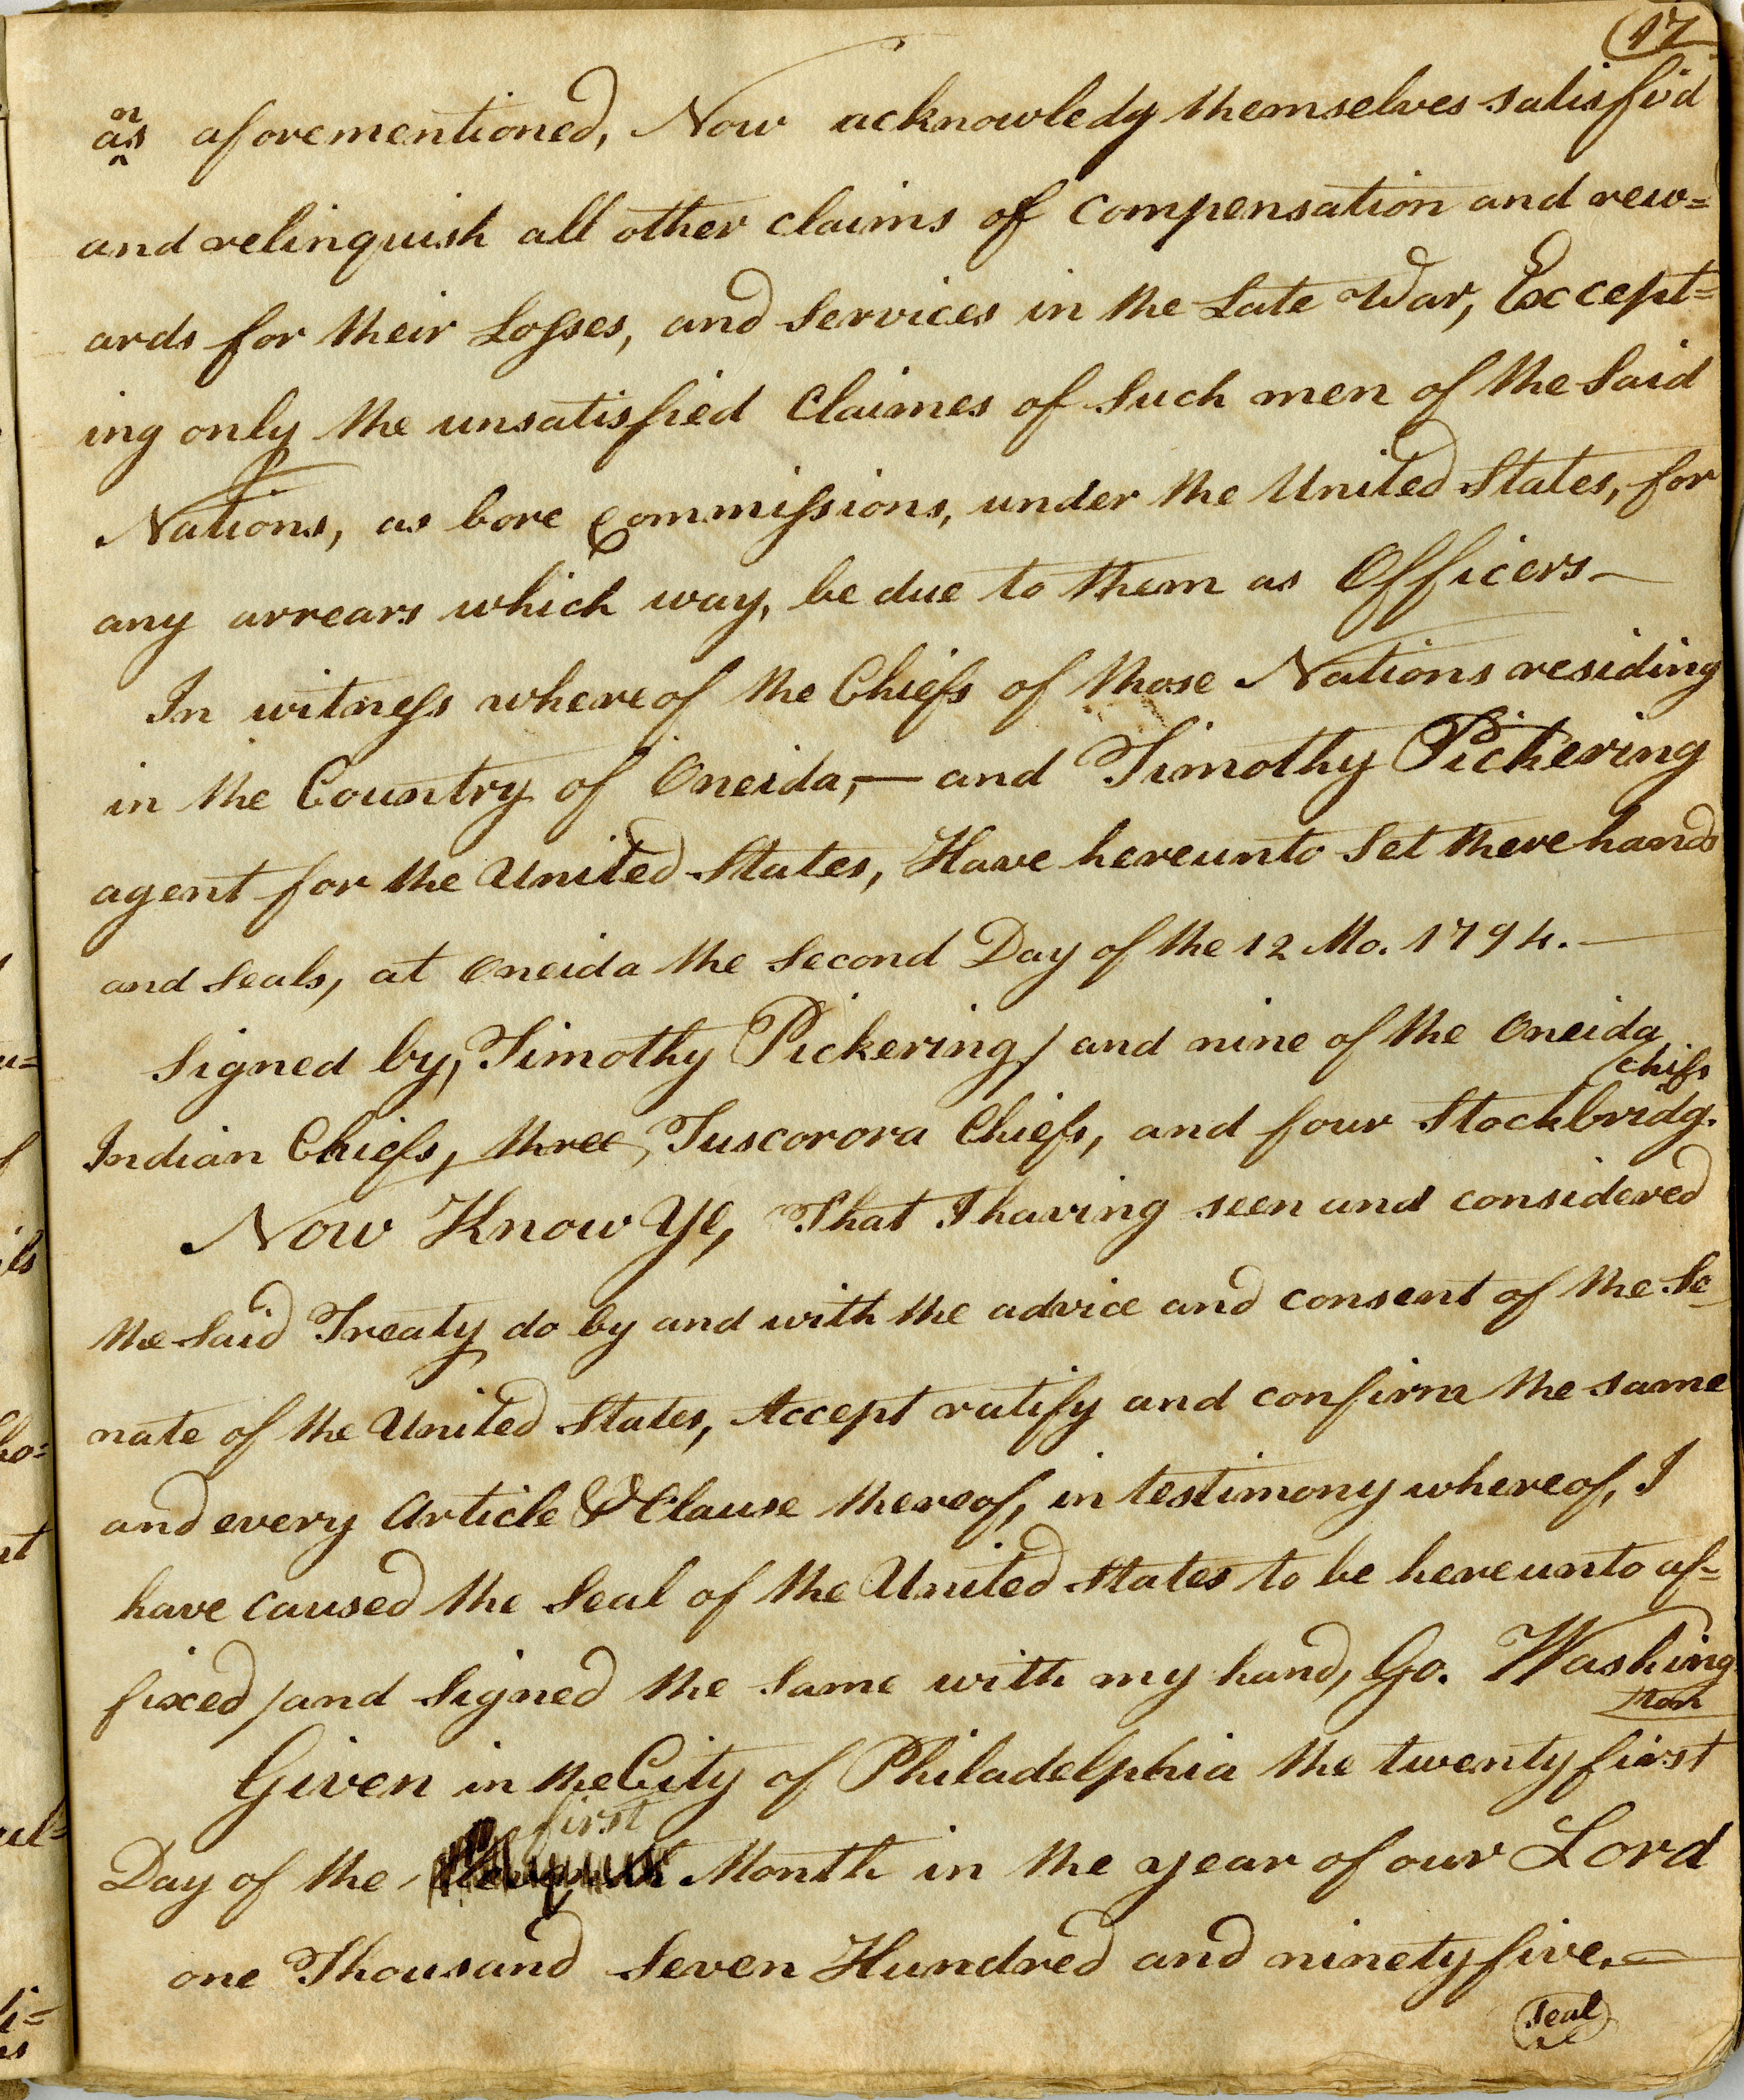 17
as aforementioned, Now acknowledg themselves satisfi'd
and relinquish all other claims of compensation and rew=
ards for their Losses, and Services in the Late War, Except=
ing only the unsatisfied Claimes of Such men of the Said
Nations, as bore Commissions, under the United States, for
any arrears which way, be due to them as Officers—
In witness whereof the Chiefs of those Nations residing
in the Country of Oneida,— and Timothy Pickering
agent for the United States, Have hereunto Set there hands
and Seals, at Oneida the Second Day of the 12 Mo. 1794.—
Signed by, Timothy Pickering, and nine of the Oneida
Indian Chiefs, three, Tuscorora Chiefs, and four Stockbridg. chifs
Now Know Ye, That I having seen and considered
the Said Treaty do by and with the advice and consent of the Se-
nate of the United States, Accept ratify and confirm the same
and every Article & Clause thereof, in testimony whereof, I
have caused the Seal of the United States to be hereunto af=
fixed, and Signed the Same with my hand, Go. Washing
ton
Given in the City of Philadelphia the twenty first
first
Day of the Month in the year of our Lord
one Thousand Seven Hundred and ninety five.—
Seal